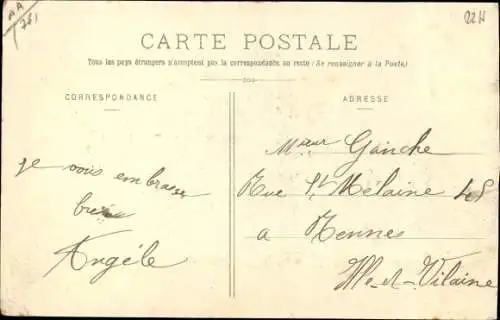 22H
CARTE POSTALE
Tous les pays étrangers n'acceptent pas la correspondance au recto (Se renseigner à la Poste)
CORRESPONDANCE
ADRESSE
je vous embrasse
bien
Angèle
Mssieur Gainche
Rue St Mélaine
a Rennes
Ille-et-Vilaine